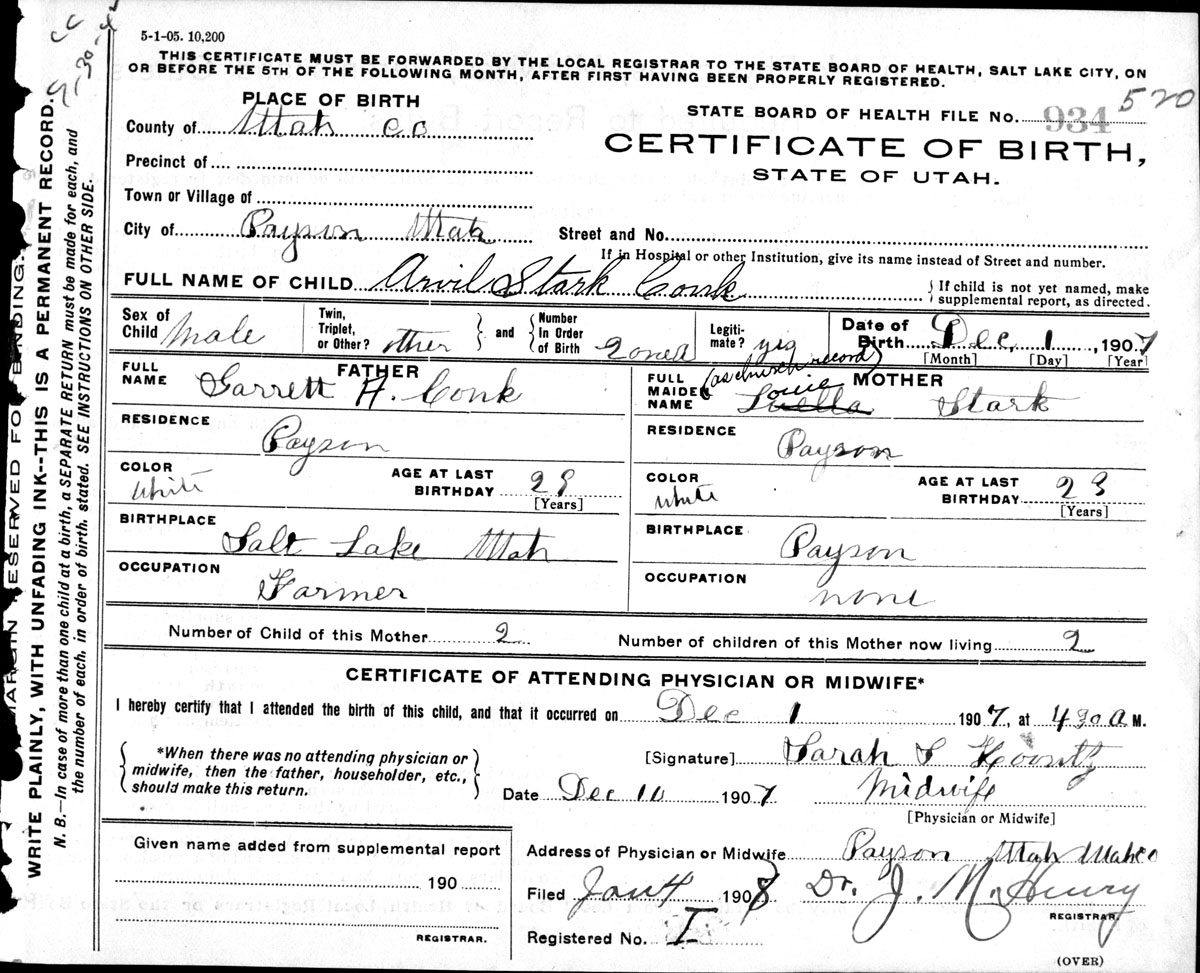 5-1-05. 10,200
THIS CERTIFICATE MUST BE FORWARDED BY THE LOCAL REGISTRAR TO THE STATE BOARD OF HEALTH, SALT LAKE CITY, ON
OR BEFORE THE 5TH OF THE FOLLOWING MONTH, AFTER FIRST HAVING BEEN PROPERLY REGISTERED.
PLACE OF BIRTH
STATE BOARD OF HEALTH FILE No. 934 520
County of Utah Co
CERTIFICATE OF BIRTH,
STATE OF UTAH.
Precinct of
Town or Village of
City of Payson Utah Street and No.
If in Hospital or other Institution, give its name instead of Street and number.
FULL NAME OF CHILD Arvil Stark Conk {If child is not yet named, make supplemental report, as directed.
Sex of Child Male Twin, Triplet, or Other? other and Number In Order of Birth Legiti-mate? yes Date of Birth Dec. 1, 1907
[Month] [Day] [Year]
FATHER
FULL NAME Garrett H. Conk
RESIDENCE Payson
COLOR White AGE AT LAST BIRTHDAY 29
[Years]
BIRTHPLACE Salt Lake Utah
OCCUPATION Farmer
MOTHER
(as church record)
FULL MAIDEN NAME Louie Luella Stark
RESIDENCE Payson
COLOR White AGE AT LAST BIRTHDAY 23
[Years]
BIRTHPLACE Payson
OCCUPATION none
Number of Child of this Mother 2 Number of children of this Mother now living 2
CERTIFICATE OF ATTENDING PHYSICIAN OR MIDWIFE*
I hereby certify that I attended the birth of this child, and that it occurred on Dec 1 1907, at 4 30 A M.
*When there was no attending physician or
midwife, then the father, householder, etc.,
should make this return.
[Signature] Sarah S Koontz
Date Dec 10 1907 Midwife
[Physician or Midwife]
Given name added from supplemental report
190
REGISTRAR.
Address of Physician or Midwife Payson Utah Utah Co
Filed Jan 4 1908 Dr. J. M. Henry
REGISTRAR.
Registered No. I
(OVER)
MARGIN RESERVED FOR BINDING.
WRITE PLAINLY, WITH UNFADING INK--THIS IS A PERMANENT RECORD.
N. B.—In case of more than one child at a birth, a SEPARATE RETURN must be made for each, and
the number of each, in order of birth, stated. SEE INSTRUCTIONS ON OTHER SIDE.